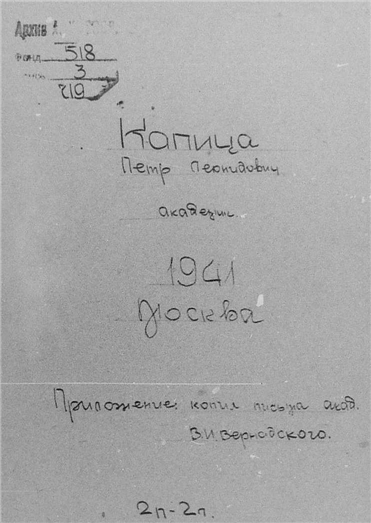 Архив А.
Фонд 518
3
719
Капица
Петр Леонидович
академик
1941
Москва
Приложение: копия письма акад.
В.И. Вернадского.
2п-2л.